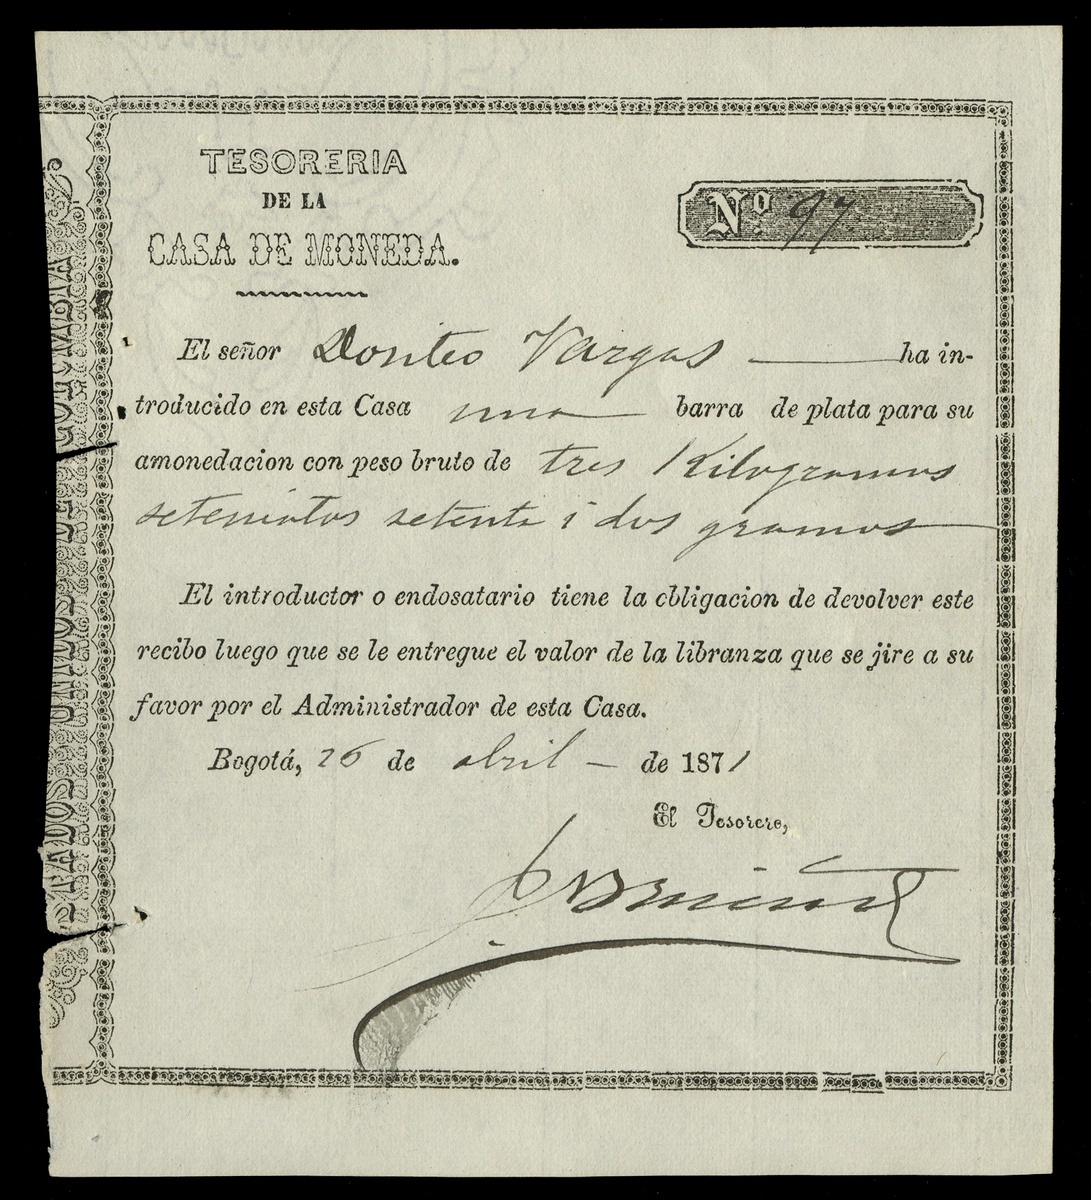 TESORERIA
DE LA
CASA DE MONEDA.
Nº 97
El señor Dositeo Vargas ha in-
troducido en esta Casa una barra de plata para su
amonedacion con peso bruto de tres Kilogramos
setecientos setenta i dos gramos
El introductor o endosatario tiene la obligacion de devolver este
recibo luego que se le entregue el valor de la libranza que se jire a su
favor por el Administrador de esta Casa.
Bogotá, 26 de abril de 1871
El Tesorero,
ESTADOS UNIDOS DE COLOMBIA